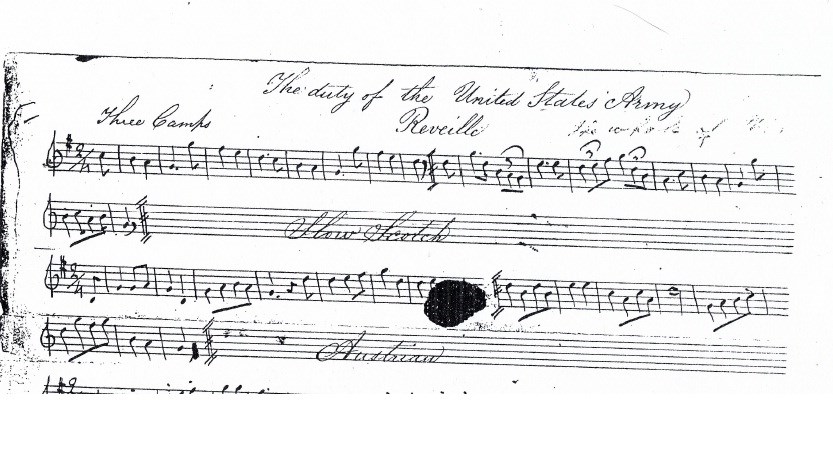 The duty of the United States Army
Three Camps
Reveille
2/4
Slow Scotch
2/4
Austrian